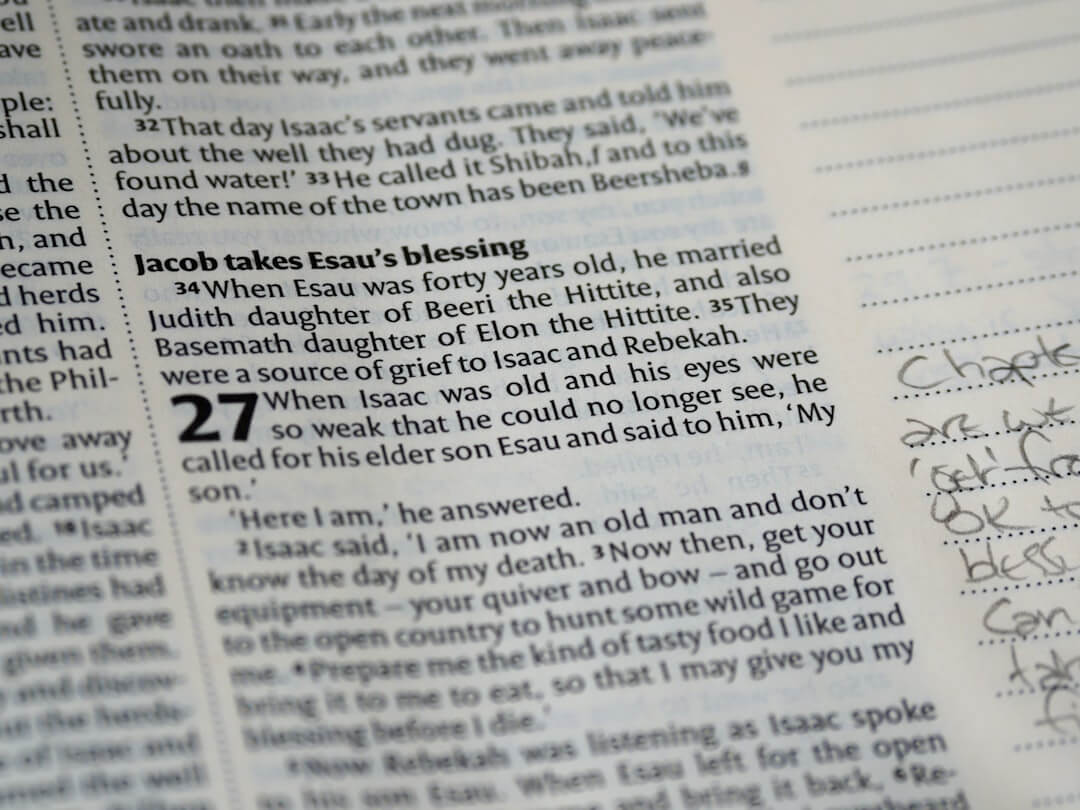 ell
ave
ple:
shall
d the
se the
n, and
ecame
d herds
ed him.
nts had
the Phil-
rth.
ove away
ul for us.'
nd camped
ed. 18 Isaac
in the time
listines had
nd he gave
given them.
ate and drank. 31 Early the next morning
swore an oath to each other. Then Isaac sent
them on their way, and they went away peace-
fully.
32 That day Isaac's servants came and told him
about the well they had dug. They said, 'We've
found water!' 33 He called it Shibah,f and to this
day the name of the town has been Beersheba.g
Jacob takes Esau's blessing
34 When Esau was forty years old, he married
Judith daughter of Beeri the Hittite, and also
Basemath daughter of Elon the Hittite. 35 They
were a source of grief to Isaac and Rebekah.
27 When Isaac was old and his eyes were
so weak that he could no longer see, he
called for his elder son Esau and said to him, 'My
son.'
'Here I am,' he answered.
2 Isaac said, 'I am now an old man and don't
know the day of my death. 3 Now then, get your
equipment – your quiver and bow – and go out
to the open country to hunt some wild game for
me. 4 Prepare me the kind of tasty food I like and
bring it to me to eat, so that I may give you my
blessing before I die.'
5 Now Rebekah was listening as Isaac spoke
to his son Esau. When Esau left for the open
and bring it back, 6 Re-
Chapte
are
'get' fr
OK to
bless
Can